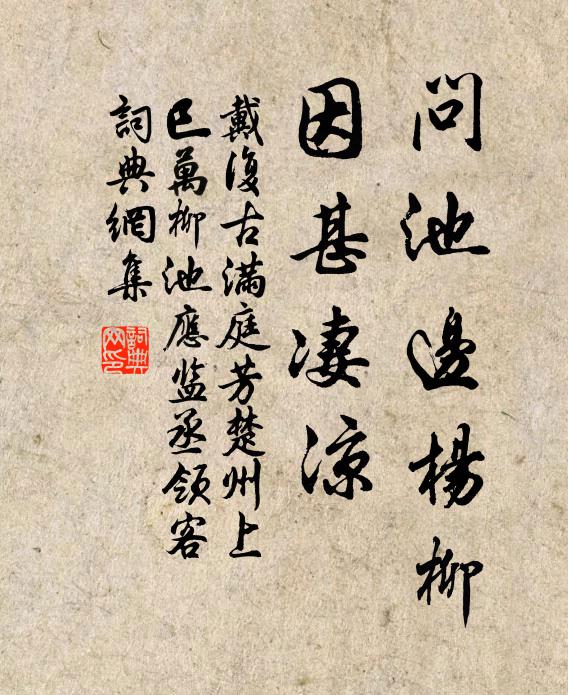 問池邊楊柳
因甚凄涼
戴復古滿庭芳楚州上
巳萬柳池應监丞領客
詞典網集
詞典
网印